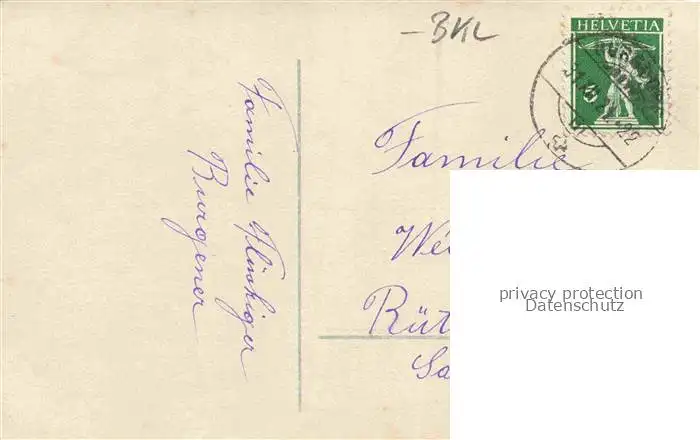 BKL
HELVETIA
5
Familie Flückiger
Burgener
Familie
We
Rüt
Sa
privacy protection
Datenschutz